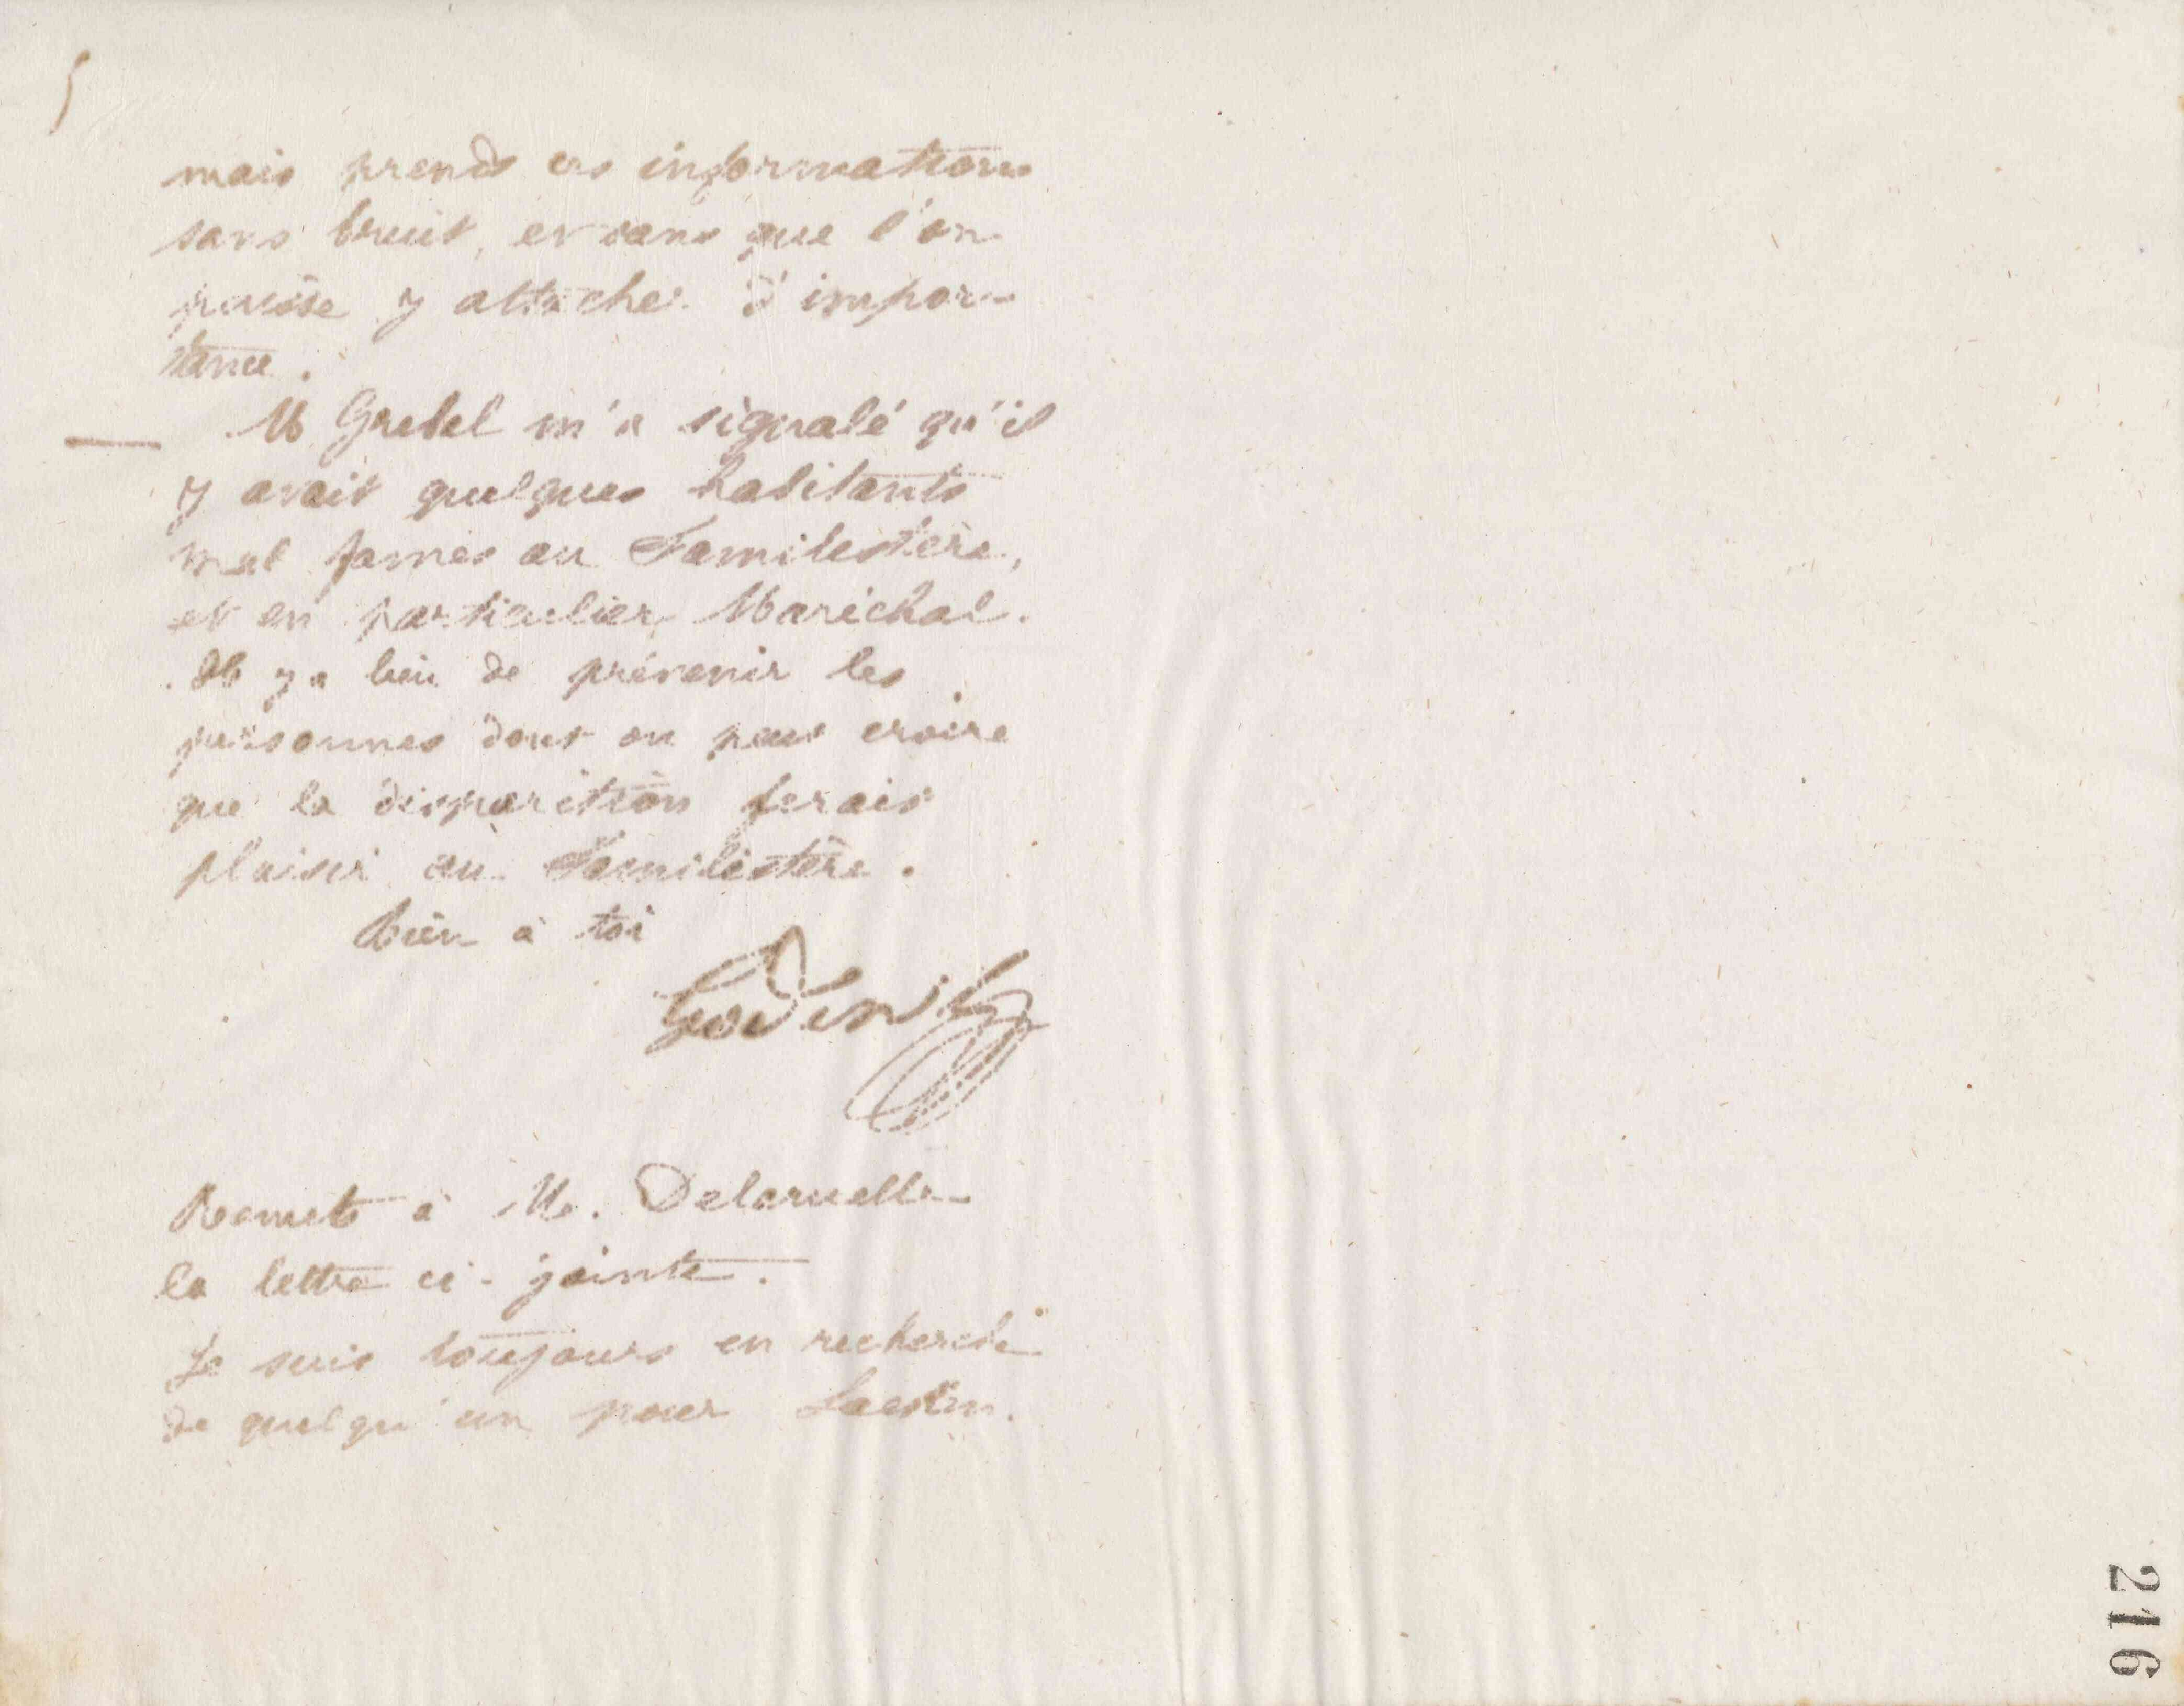 5
mais prends ces informations
sans bruit, et sans que l'on
puisse y attacher d'impor-
tance.
M Grebel m'a signalé qu'il
y avait quelques habitants
mal famés au Familistère,
et en particulier Maréchal.
Il y a lieu de prévenir les
personnes dont on peut croire
que la disparition ferait
plaisir au Familistère.
Bien à toi
Godin
Remets à M. Delaruelle
la lettre ci-jointe.
Je suis toujours en recherche
de quelqu'un pour Laeken.
216